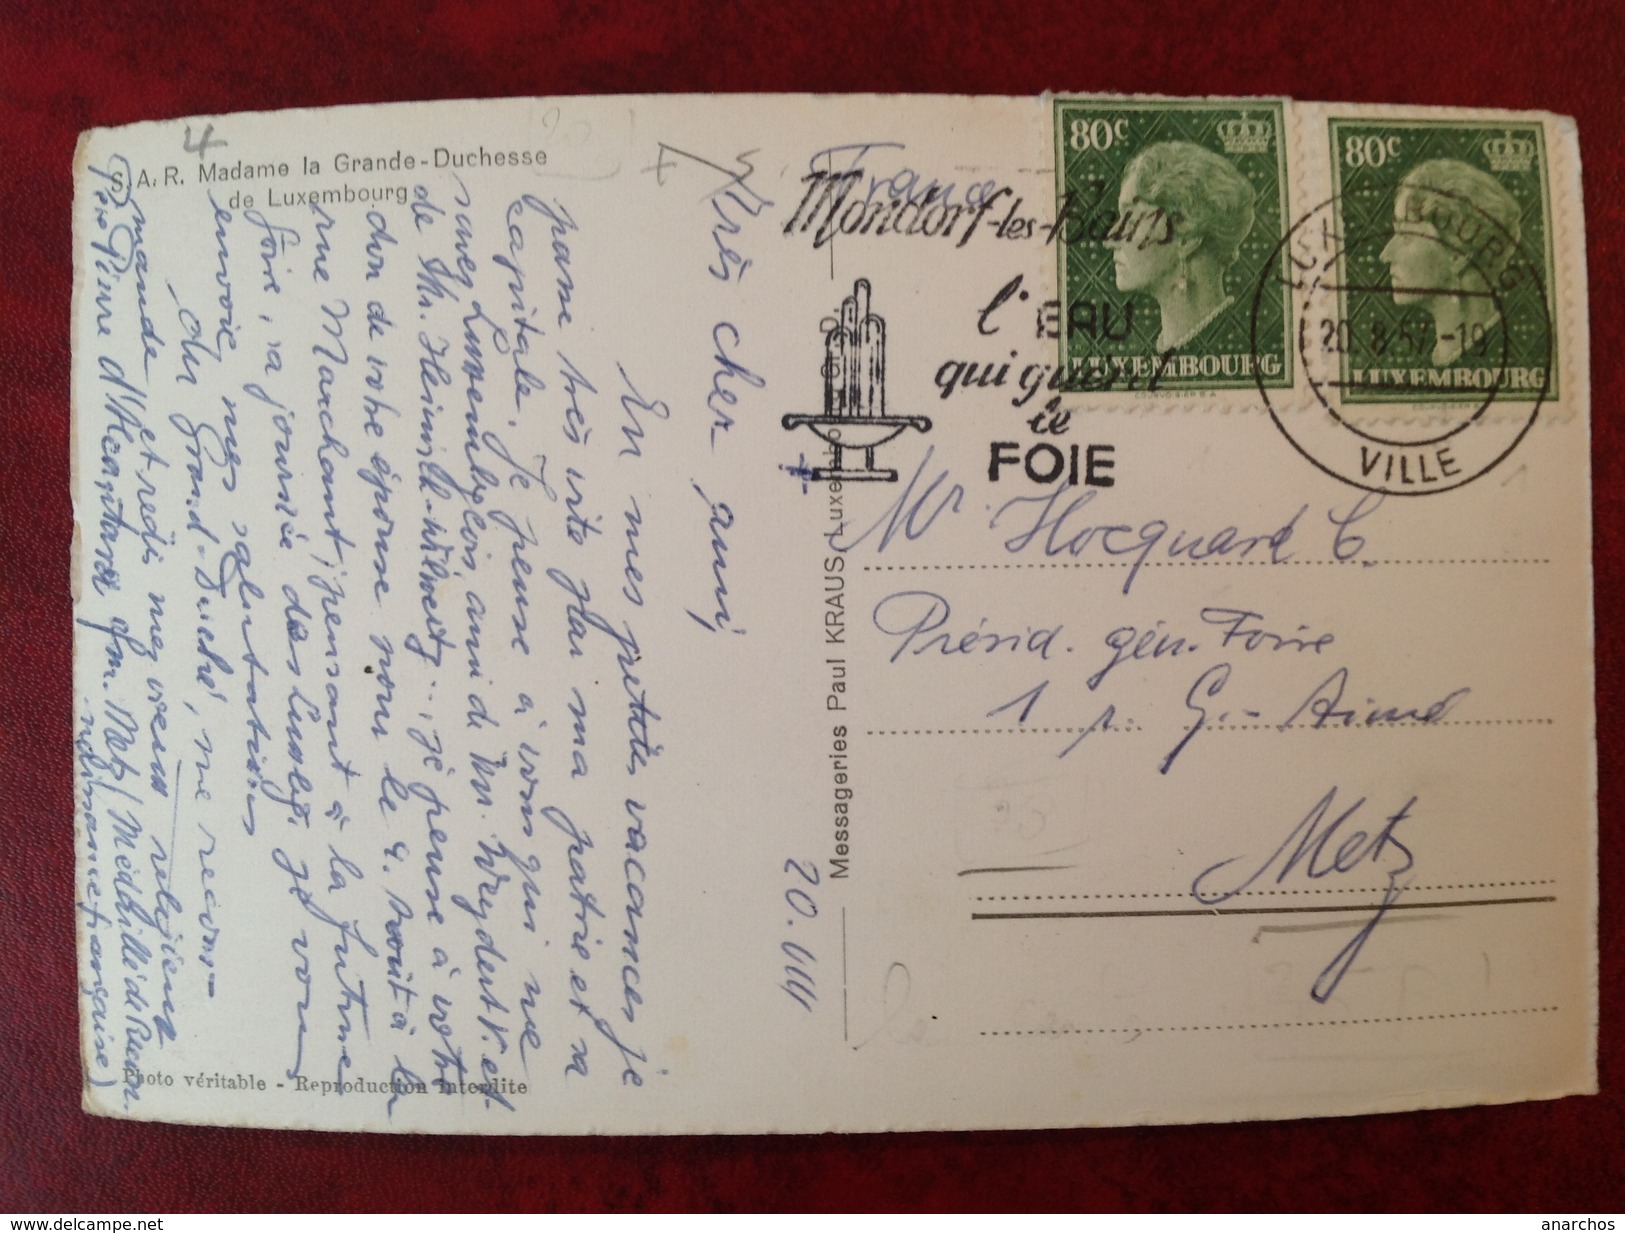 S.A.R. Madame la Grande-Duchesse
de Luxembourg
4
France
Mondorf-les-Bains
l'EAU
qui guérit
le
FOIE
80c
LUXEMBOURG
COURVOISIER S.A.
80c
LUXEMBOURG
COURVOISIER
LUXEMBOURG
20.8.57.-19
VILLE
Mr. Hocquard C.
Présid. gén. Foire
1 r. G.- Aimé
Metz
Messageries Paul KRAUS, Luxembourg
20.VIII
Très cher ami,
En mes petites vacances je
passe très vite par ma patrie et sa
capitale. Je pense à vous qui ne
savez Luxembglois, ami de Mr.
de Mr. je pense à votre
don de votre épouse pour le
rue Marchant, pensant à la future
foire, sa journée des je vous
envoie mes salutations
du Grand-Duché, me recom-
mande et redis mes vœux religieux
Père Pierre d'Alcantara ofm. Metz (Médaillé de
française)
Photo véritable - Reproduction interdite
anarchos